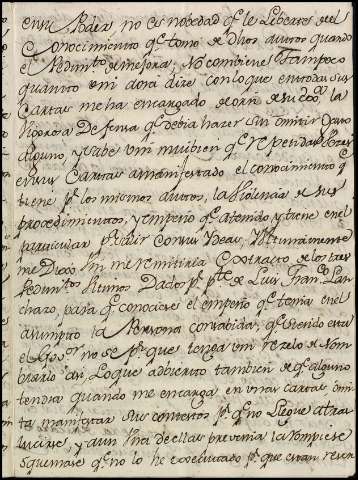 en su Poder, no es novedad qe le Liberase del
Conocimiento qe tomo de dhos autos quando
el Pedimto de mejora; No combiene Tampoco
quanto vm aora dice con lo que en todas sus
Cartas me ha encargado de orn de su Exa la
rigorosa Defensa qe debia hazer sin omitir paso
alguno, y sabe vm mui bien qe repetidas Vezes
en sus Cartas à manifestado el conocimiento qe
tiene pr los mismos autos, la violencia de sus
procedimientos, y empeño qe à tenido, y tiene en el
particular pr salir con sus Ideas; Ultimamente
me Dice Vm me remitiria Extracto de los tres
Pedimtos Ultimos Dados pr pte de Luis Franco Lan
chazo, para qe conociese el empeño qe tenia en el
asumpto la Persona consabida; qe siendo esta
el Gor no se pr que tenga vm rezelo de Nom
brarlo asi, Lo que adbierto tambien de qe alguno
tendra quando me encarga en unas cartas omi
ta manifestar sus contestos pr qe no Llegue à tras
lucirse, y aun una de ellas prevenia la rompiese
ò quemase qe no lo he executado pr que estan reser